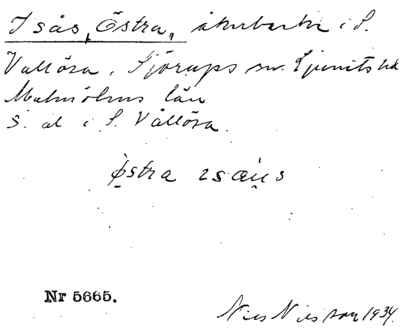 Isås, Östra, åkerbacke i S.
Vallösa, Sjörups sn. Ljunits hd
Malmöhus län
S. al i S. Vallösa.
östra isaus
Nr 5665.
Nils Nilsson 1934.